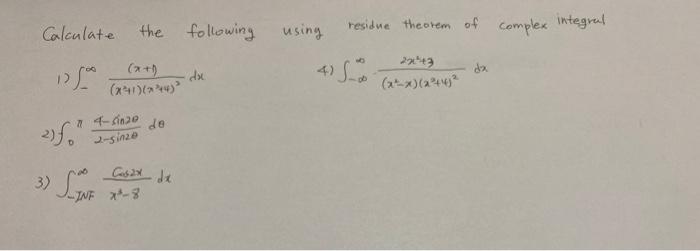 Calculate the following using residue theorem of complex integral
1) ∫_-^∞ (x+1) / (x²+1)(x²+4)² dx
4) ∫_-∞^∞ 2x²+3 / (x²-x)(x²+4)² dx
2) ∫_0^π 4-sin2θ / 2-sin2θ dθ
3) ∫_-INF^∞ Cos2x / x³-8 dx